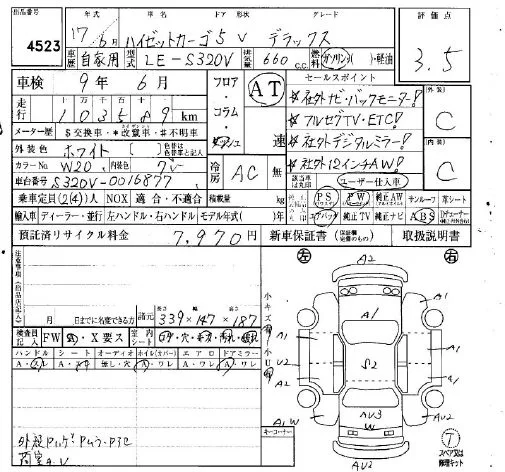 出品番号 年式 車名 ドア 形状 グレード 評価点
4523 17年6月 ハイゼットカーゴ5V デラックス 3.5
車歴 自家用 型式 LE-S320V 排気量 660 c.c. 燃料 ガソリン・軽油
車検 9年 6月 フロア・コラム・ AT セールスポイント
走行 103589 km ☆社外ナビ・バックモニター! 外装 C
メーター歴 $交換車・*改竄車・#不明車 速 ☆フルセグTV・ETC!
外装色 ホワイト [色替は色替車と記入] ☆社外デジタルミラー! 内装 C
カラーNo. W20 内装色 グレー 冷房 AC 無 ☆社外12インチAW!
車台番号 S320V-0016877 該当車は丸印 ユーザー仕入車
乗車定員(2(4))人 NOX 適合・不適合 積載量 kg PS PW 純正AW サンルーフ 革シート
輸入車 ディーラー・並行 左ハンドル・右ハンドル モデル年式( )年 エアバッグ 純正TV 純正ナビ ABS
預託済リサイクル料金 7,970円 新車保証書 取扱説明書
注意事項(出品店記入)
月 日までに名変できる方 諸元 長さ 339×幅 147×高さ 187
検査員記入 FW X要ス 室内シート
ハンドル シート オーディオ ホイル(カバー) エアロ ドアミラー
A・スレ 無し・欠 A・ワレ A・ワレ A・ワレ
荷室A.V
キーコーナー
左 右
小キズ
A2
A1 A1
A1 A1
U2 S2 U2
A2 A1
AV3
W
A1W AV2
AV2
T
スペア又は
修理キット